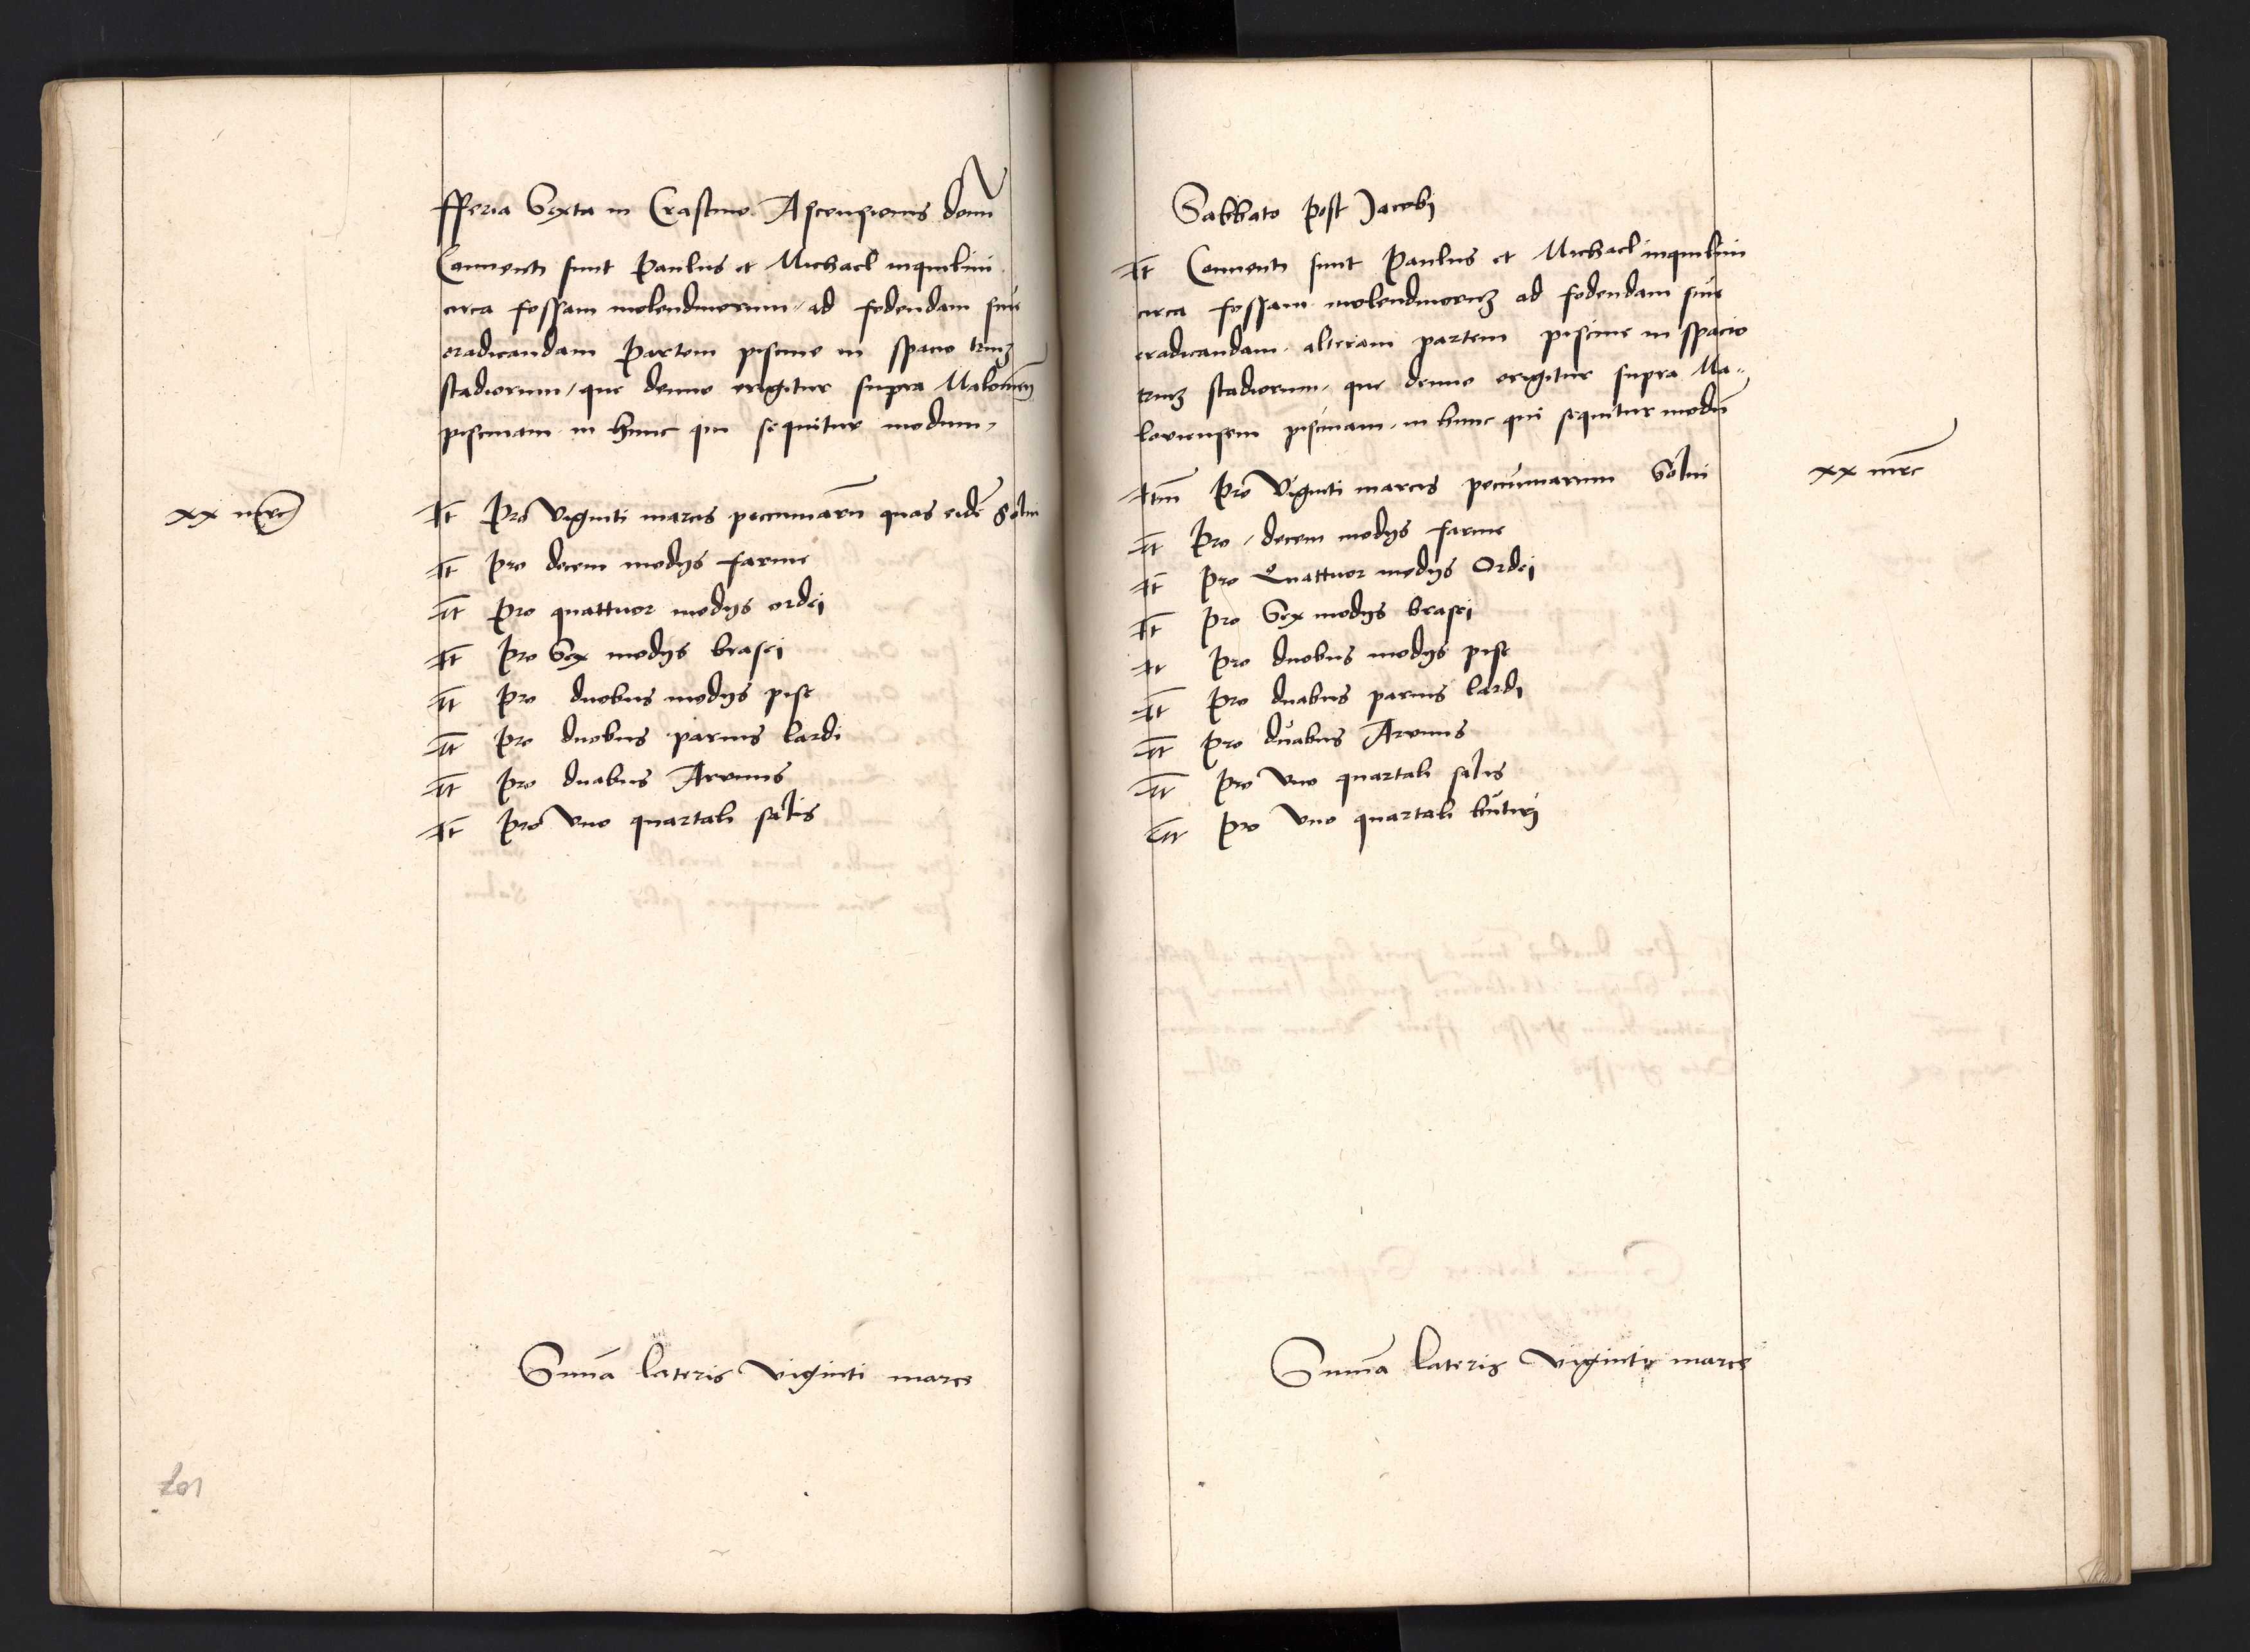 fferia Sexta in Crastino Ascensionis domi
Conventi sunt Paulus et Michael inquilini
circa fossam molendinorum ad fodendam sive
eradicandam Partem piscine in spacio trium
stadiorum / que denuo erigitur supra Maloviens
piscinam in hunc qui sequitur modum /
xx mrc
It Pro Viginti marcis pecuniarum quas eidem Solvi
It Pro decem modijs farine
It Pro quattuor modijs ordej
It Pro Sex modijs brasej
It Pro duobus modijs pise
It Pro duobus parnis lardi
It Pro duabus Arvinis
It Pro Vno quartali salis
Suma lateris Viginti marce
107
Sabbato Post Jacobj
It Conventi sunt Paulus et Michael inquilini
circa fossam molendinorum ad fodendam sive
eradicandam alteram partem piscine in spacio
trium stadiorum / que denuo erigitur supra Ma-
loviensem piscinam in hunc qui sequitur modum
Itm Pro Viginti marcis pecuniarum Solvi
xx mrc
It Pro / decem modijs farine
It Pro Quattuor modijs Ordej
It Pro Sex modijs brasei
It Pro duobus modijs pise
It Pro duabus parnis lardj
It Pro duabus Arvinis
It Pro Vno quartali salis
It Pro Vno quartali butirj
Suma lateris Viginti marce